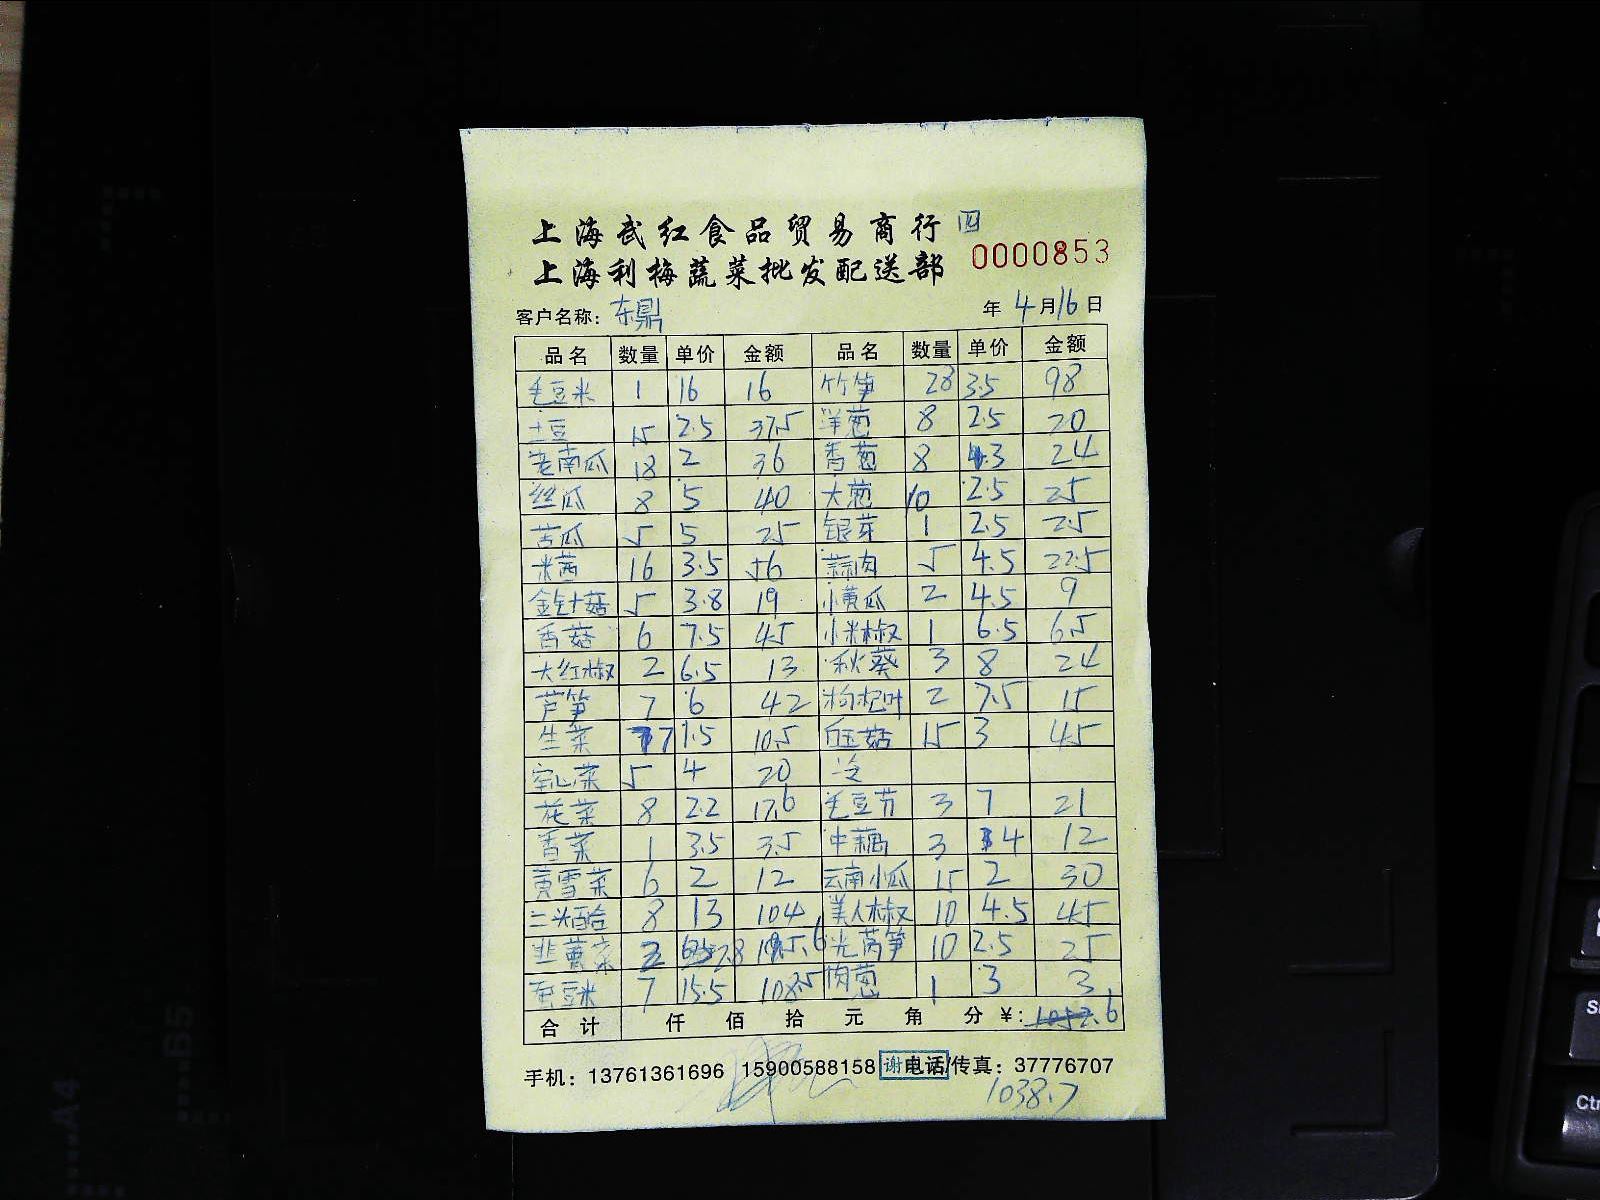 上海武红食品贸易商行 四
上海利梅蔬菜批发配送部 0000853
客户名称: 东鼎 年 4 月 16 日
品名 数量 单价 金额 品名 数量 单价 金额
毛豆米 1 16 16 竹笋 28 3.5 98
土豆 15 2.5 37.5 洋葱 8 2.5 20
老南瓜 18 2 36 香葱 8 3 24
丝瓜 8 5 40 大葱 10 2.5 25
苦瓜 5 5 25 银芽 1 2.5 2.5
米茜 16 3.5 56 蒜肉 5 4.5 22.5
金针菇 5 3.8 19 小黄瓜 2 4.5 9
香菇 6 7.5 45 小米椒 1 6.5 6.5
大红椒 2 6.5 13 秋葵 3 8 24
芦笋 7 6 42 枸杞叶 2 7.5 15
生菜 7 1.5 10.5 白玉菇 15 3 45
空心菜 5 4 20
花菜 8 2.2 17.6 毛豆节 3 7 21
香菜 1 3.5 3.5 中藕 3 4 12
黄雪菜 6 2 12 云南小瓜 15 2 30
二头百合 8 13 104 美人椒 10 4.5 45
韭黄 2 7.8 15.6 光莴笋 10 2.5 25
蚕豆米 7 15.5 108.5 肉葱 1 3 3
合计 仟 佰 拾 元 角 分 ¥: 1052.6
手机: 13761361696 15900588158 谢 电话/传真: 37776707
1038.7